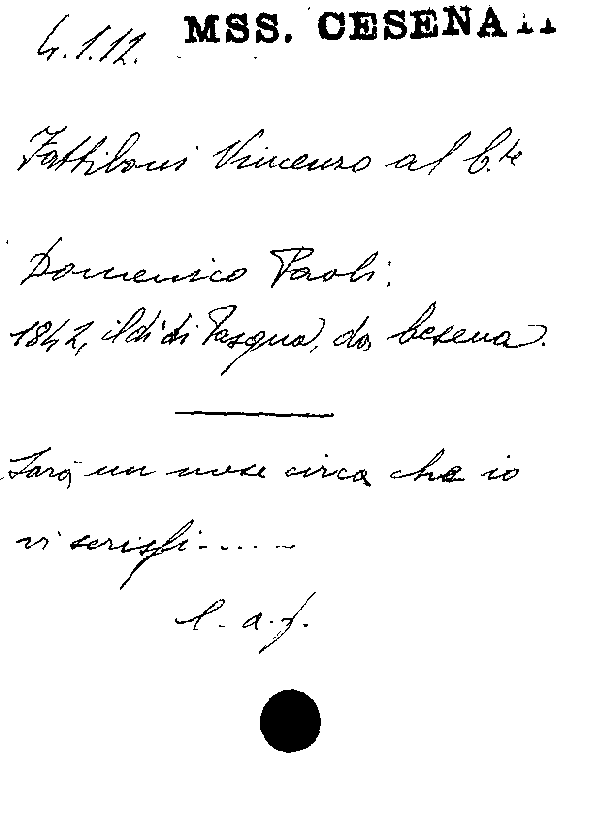 4.1.12. MSS. CESENATI
Fattiboni Vincenzo al C.te
Domenico Paoli.
1842, il dì di Pasqua, da Cesena.
Sarà un mese circa che io
vi scrissi.....
l. a. f.